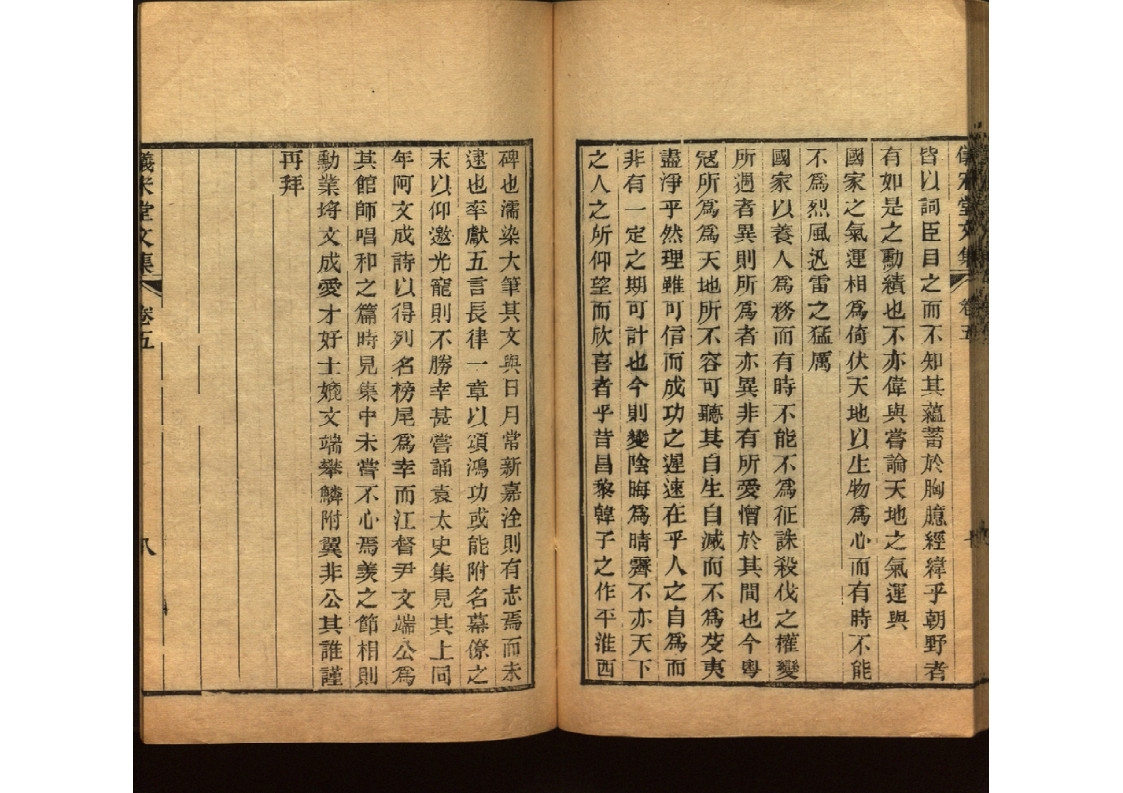 皆以詞臣目之而不知其蘊蓄於胸臆經緯乎朝野者
有如是之勳績也不亦偉與嘗論天地之氣運與
國家之氣運相為倚伏天地以生物為心而有時不能
不為烈風迅雷之猛厲
國家以養人為務而有時不能不為征誅殺伐之權變
所遇者異則所為者亦異非有所愛憎於其間也今粵
寇所為為天地所不容可聽其自生自滅而不為芟夷
盡淨乎然理雖可信而成功之遲速在乎人之自為而
非有一定之期可計也今則變陰晦為晴霽不亦天下
之人之所仰望而欣喜者乎昔昌黎韓子之作平淮西
碑也濡染大筆其文與日月常新嘉洤則有志焉而未
逮也率獻五言長律一章以頌鴻功或能附名幕僚之
末以仰邀光寵則不勝幸甚嘗誦袁太史集見其上同
年阿文成詩以得列名榜尾為幸而江督尹文端公為
其館師唱和之篇時見集中未嘗不心焉羨之節相則
勳業埒文成愛才好士媲文端攀鱗附翼非公其誰謹
再拜
儀宋堂文集
卷五
八